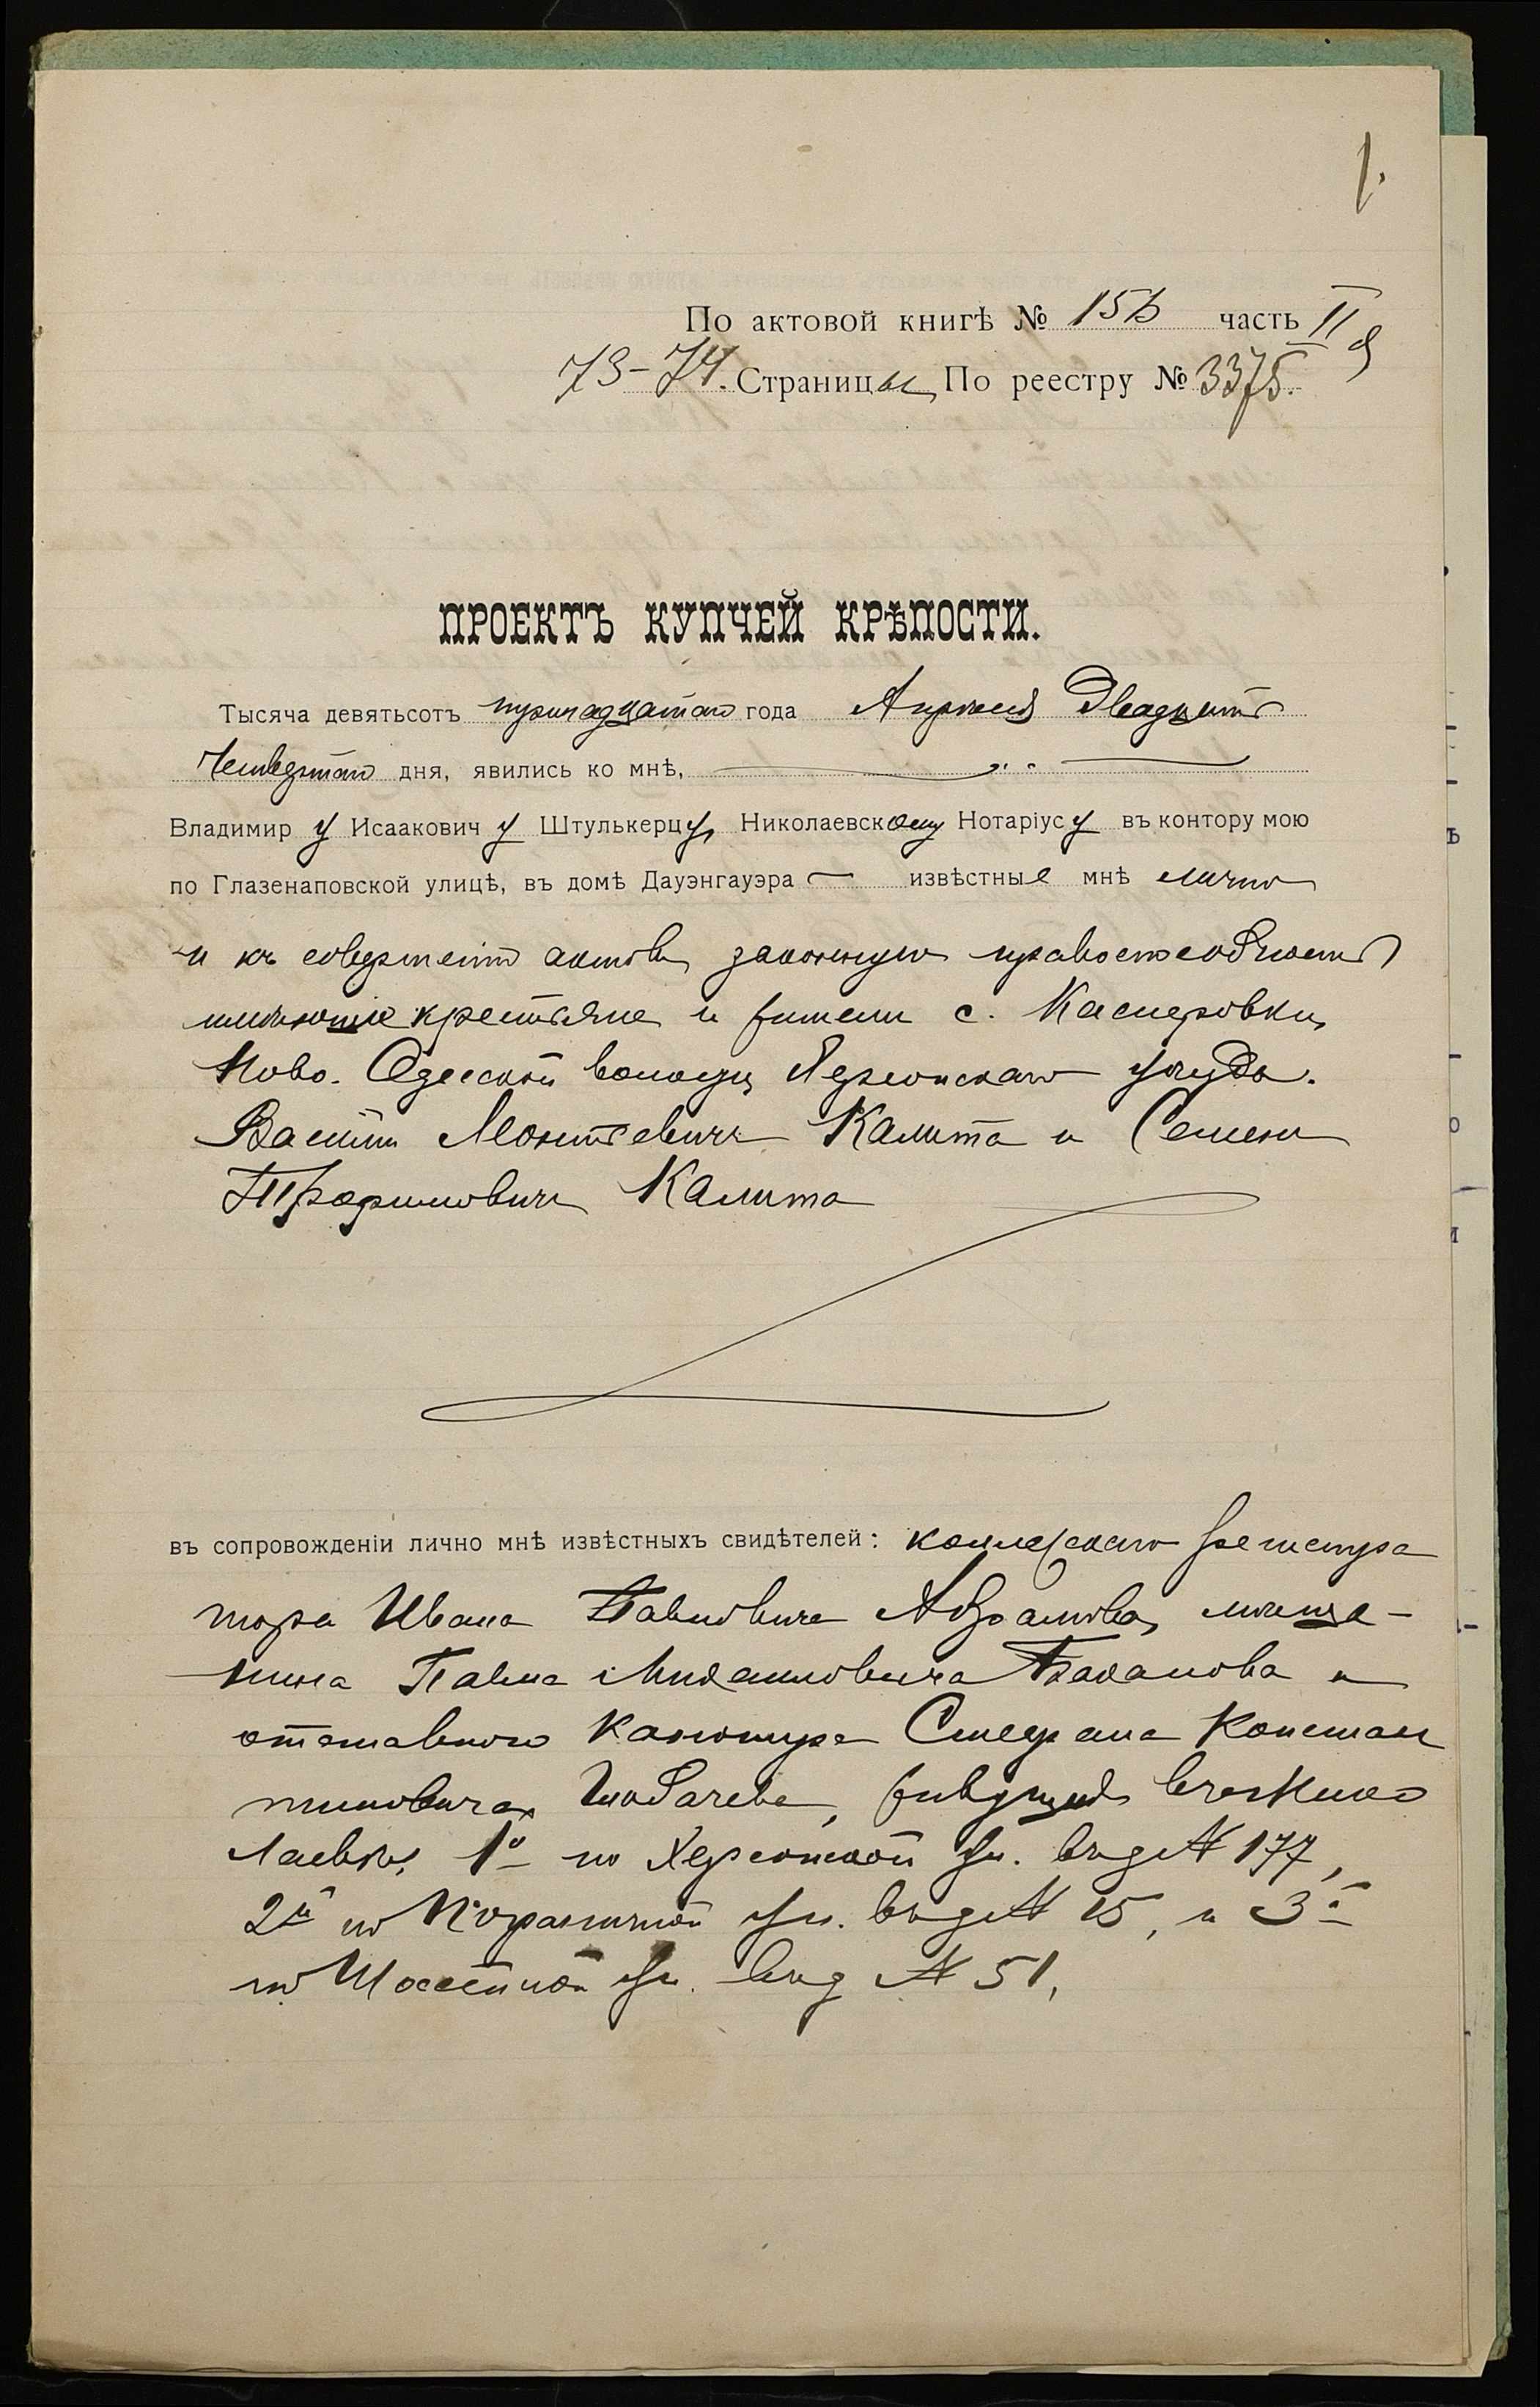 1.
По актовой книгѣ № 15Б часть II я
73-74. Страницы По реестру № 3375.
ПРОЕКТЪ КУПЧЕЙ КРѢПОСТИ.
Тысяча девятьсотъ тринадцатаго года Апрѣля двадцать
четвертаго дня, явились ко мнѣ,
Владимиру Исааковичу Штулькерцу, Николаевскому Нотаріусу въ контору мою
по Глазенаповской улицѣ, въ домѣ Дауэнгауэра извѣстные мнѣ лично
и къ совершенію актовъ законную правоспособность
имѣющіе крестьяне и жители с. Касперовки,
Ново-Одесской волости Херсонскаго уѣзда.
Василій Леонтьевичъ Калита и Семенъ
Трофимовичъ Калита
въ сопровожденіи лично мнѣ извѣстныхъ свидѣтелей: коллежскаго регистра
тора Ивана Павловича Абрамова, мѣща-
нина Павла Михайловича Баканова и
отставного кантонира Стефана Констан
тиновича, живущихъ въ г. Нико
лаевѣ, 1й по Херсонской ул. въ д № 177,
2й по Пограничной ул. въ д № 15, и 3й
по Шоссейной ул. въ д № 51,